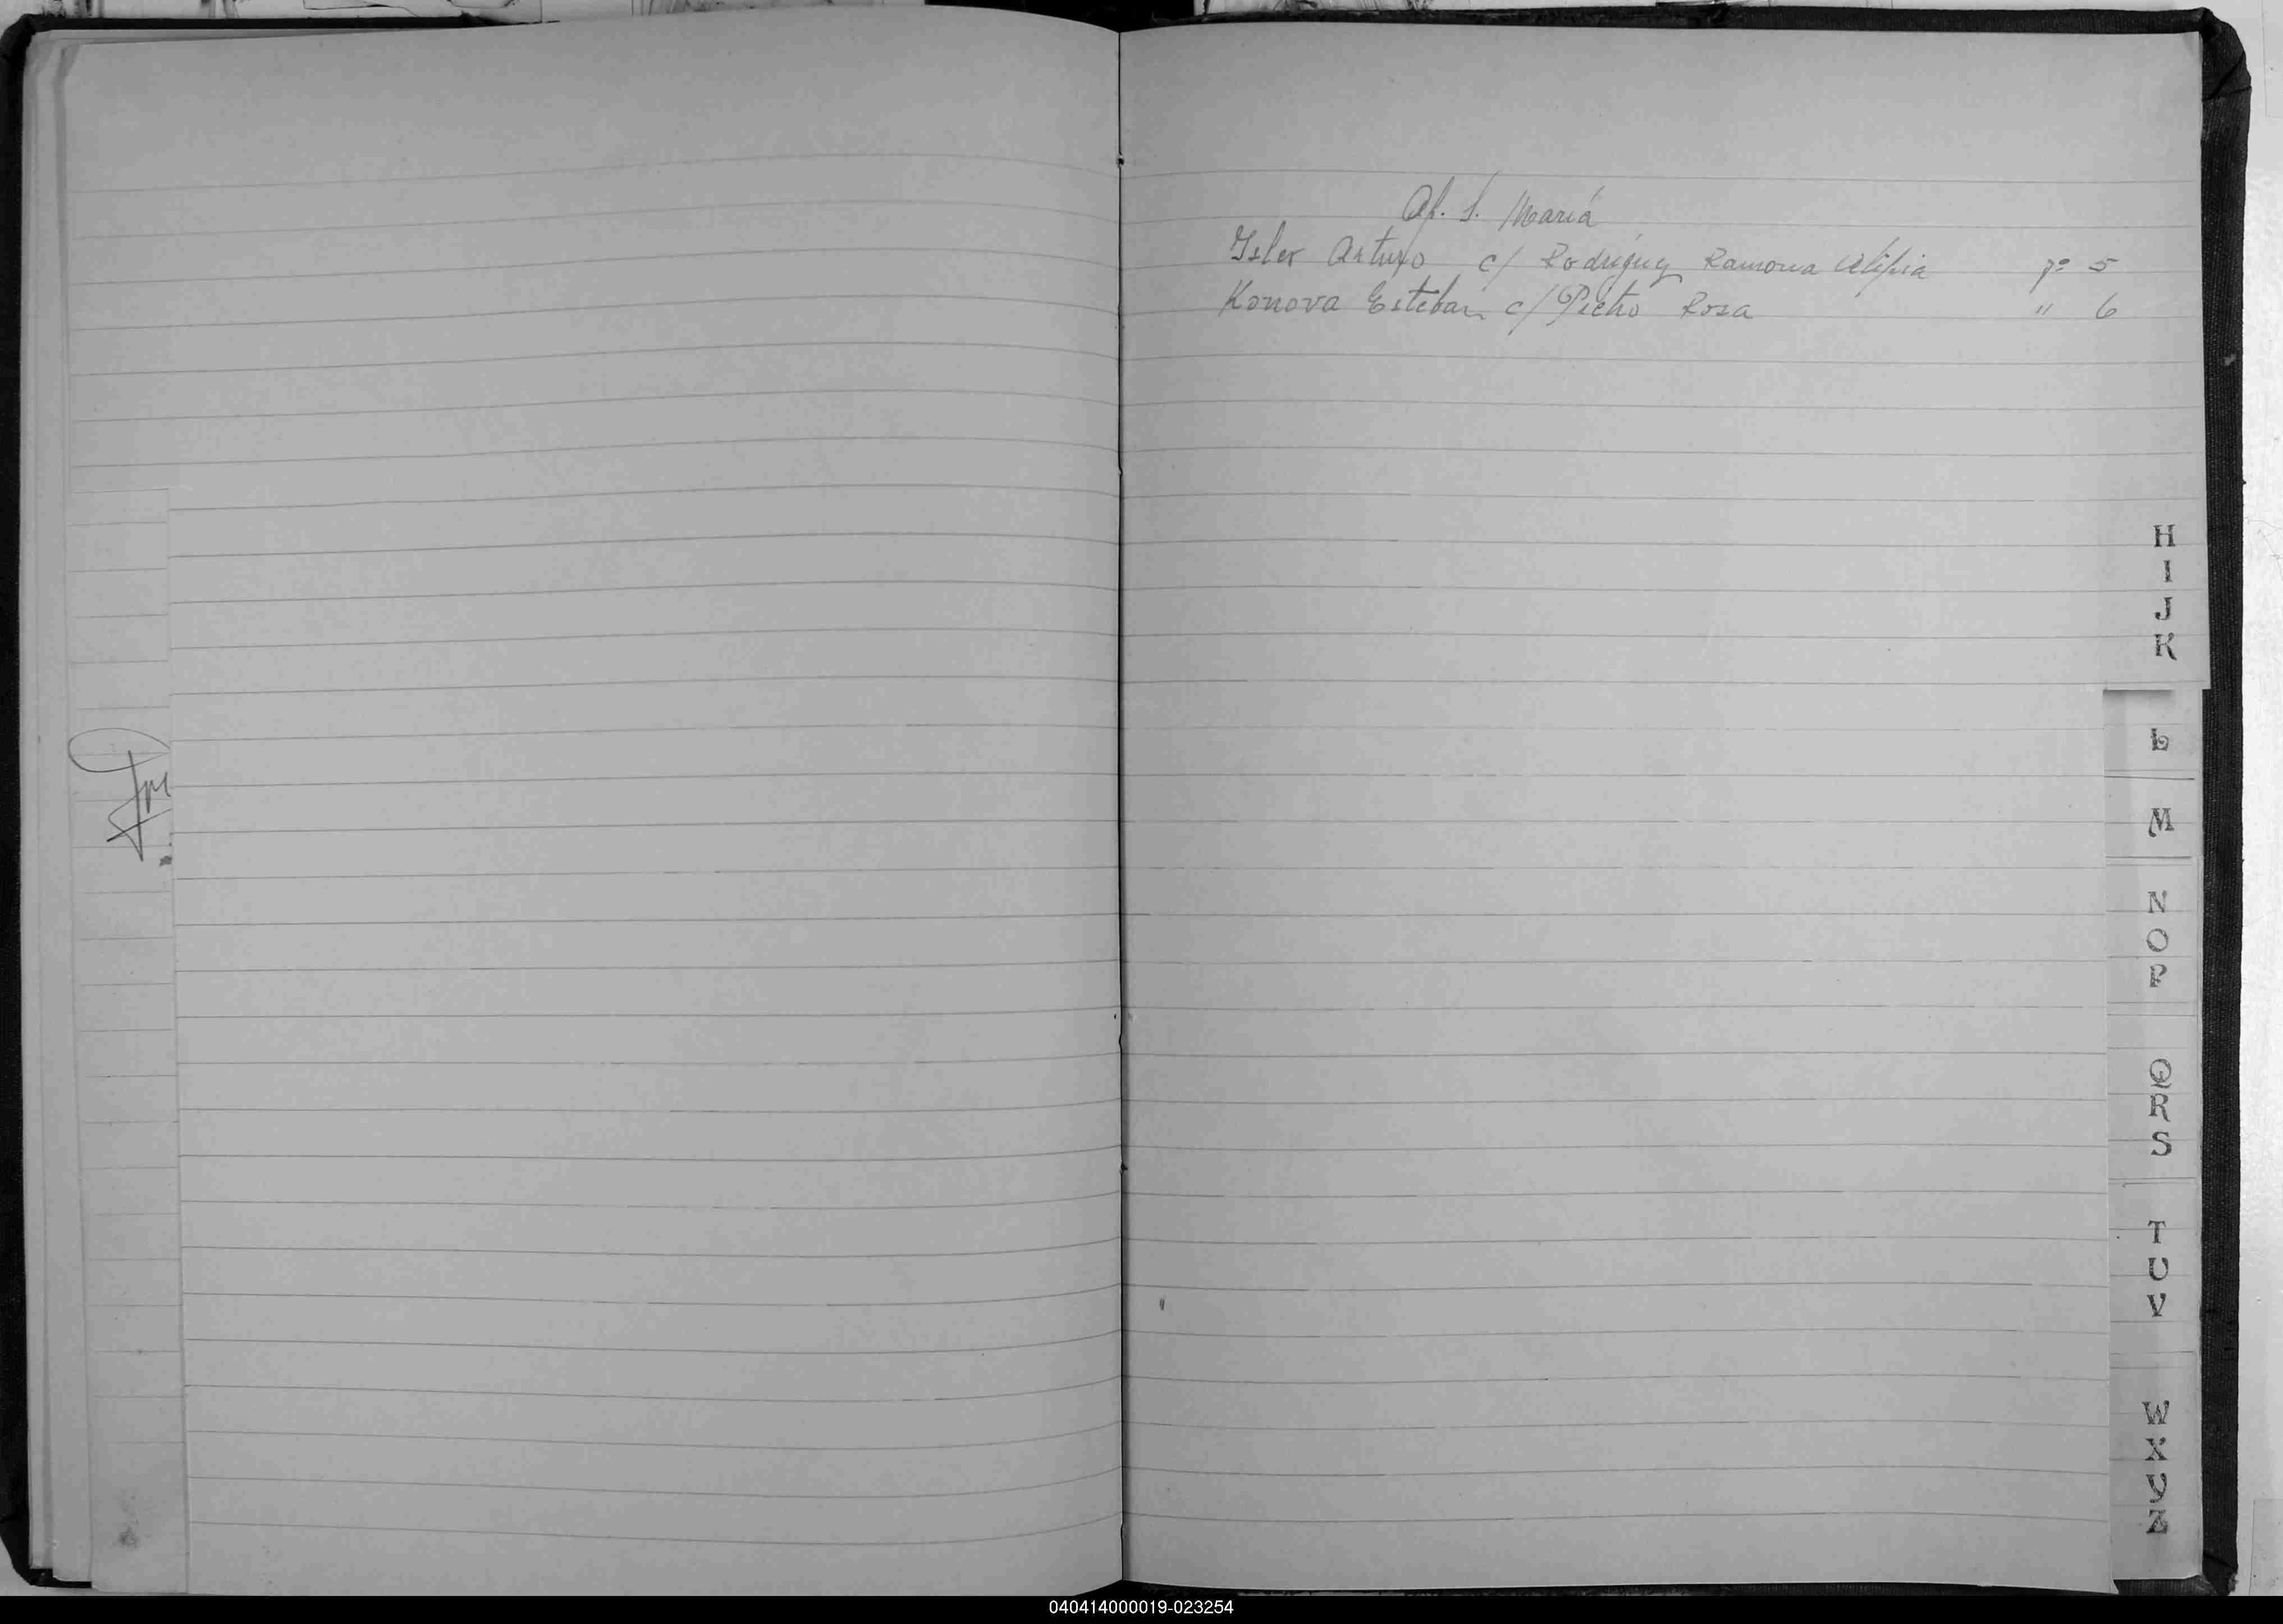 Af. S. María
Isler Arturo c/ Rodríguez Ramona Alipia pº 5
Konova Esteban c/ Pietro Rosa " 6
H
I
J
K
L
M
N
O
P
Q
R
S
T
U
V
W
X
Y
Z
040414000019-023254